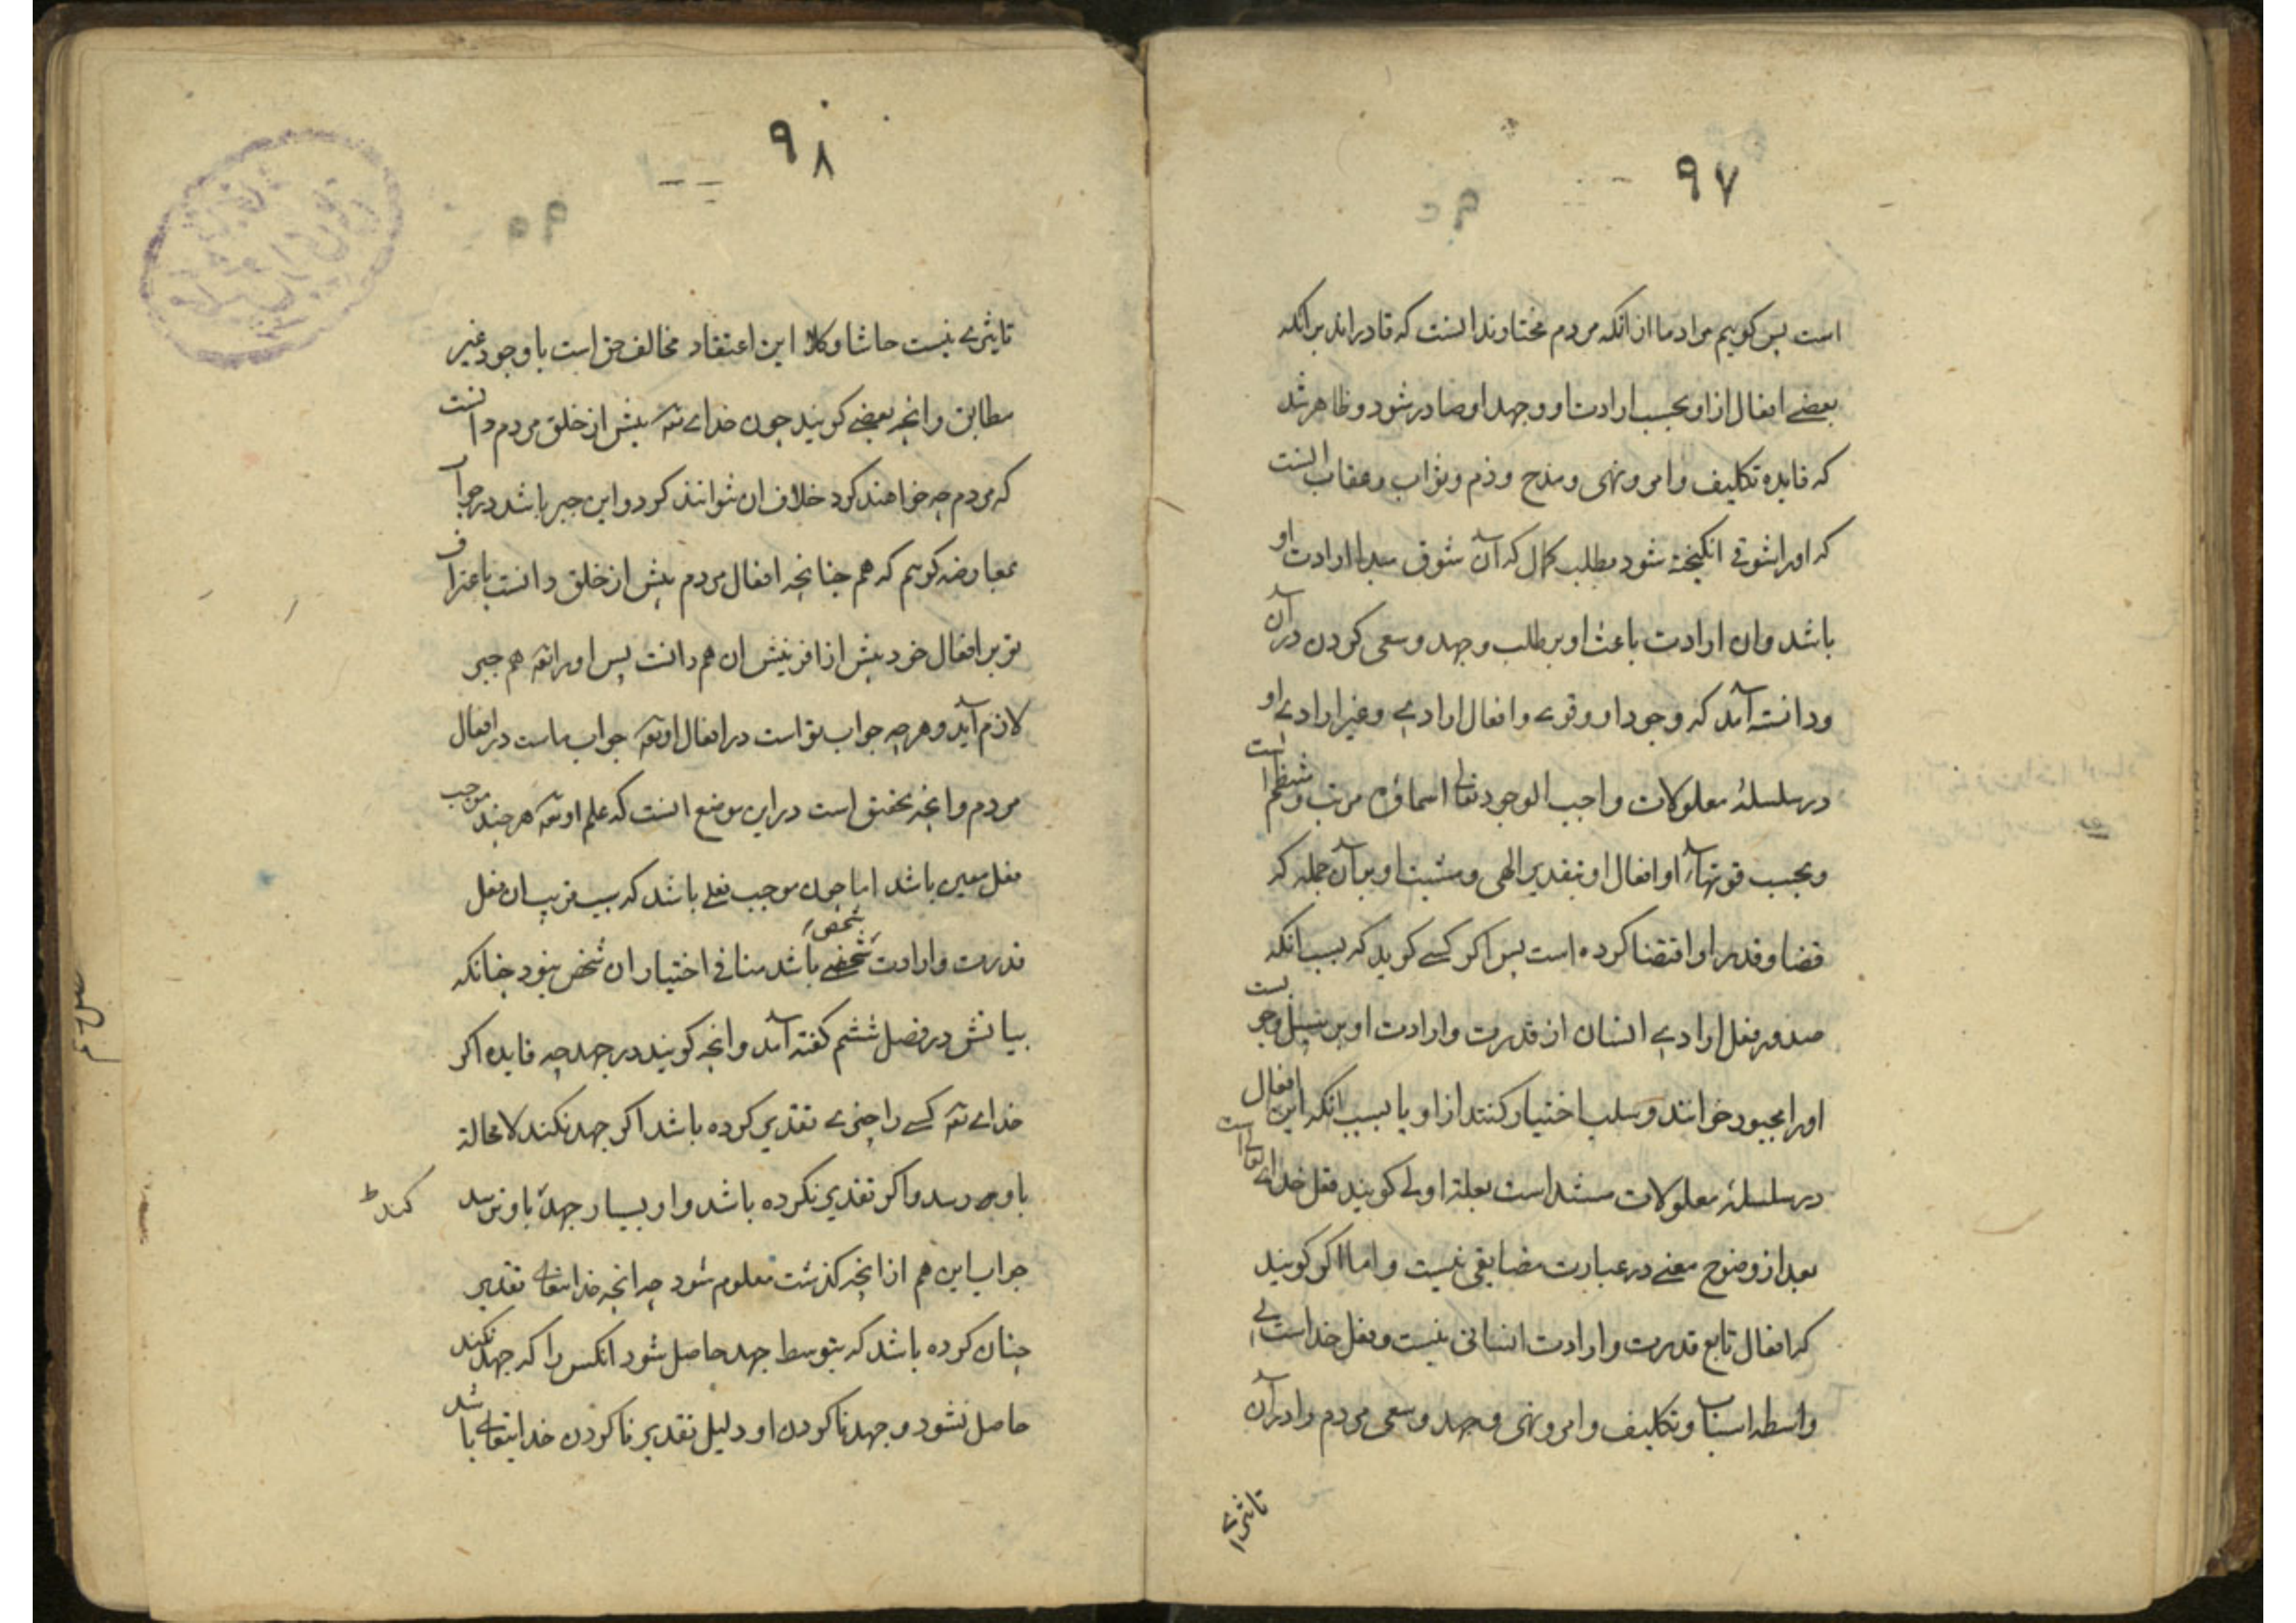 ٩٧
است پس کوییم مراد ما از انکه مردم مختارند انست که قادراند بر انکه
بعضے افعال از او بحسب ارادت او و جهد او صادر شود و ظاهر شد
که فایده تکلیف و امر و نهی و مدح و ذم و ثواب و عقاب انست
که اورا شوقی انکیخته شود بطلب کمال که آن شوق مبدا ارادت او
باشد و ان ارادت باعث او بر طلب و جهد و سعی کردن در آن
و دانسته آمد که وجود او و قوے و افعال ارادے و غیر ارادے او
در سلسلهٔ معلولات واجب الوجود تعالی اسماؤه مرتب و منتظم است
و بحسب قوتهاء او افعال او بتقدیر الهی و مشیت او بر آن جمله که
قضا و قدر او اقتضا کرده است پس اکر کسے کوید که بسبب انکه
صدور فعل ارادے انسان از قدرت و ارادت او بر سبیل وجوبست
اورا مجبور خوانند و سلب اختیار کنند از او یا بسبب انکه این افعال
در سلسلهٔ معلولات مستند است بعلة اولی کویند فعل خداے تعالی است
بعد از وضوح معنے در عبارت مضایقی نیست و اما اکر کویند
که افعال تابع قدرت و ارادت انسانی نیست و فعل خداست بے
واسطه اسباب و تکلیف و امر و نهی و جهد و سعی مردم را در آن
تاثیرے
٩٨
تاثیرے نیست حاشا و کلا این اعتقاد مخالف حق است با وجود غیر
مطابق و انچه بعضے کویند چون خداے تعه پیش از خلق مردم دانست
که مردم چه خواهند کرد خلاف ان نتوانند کرد و این جبر باشد در جواب
بمعارضه کوییم که هم چنانچه افعال مردم پیش از خلق دانست باعتراف
تو بر افعال خود پیش از افرینش ان هم دانست پس اورا تعه هم جبر
لازم آید و هر چه جواب تواست در افعال او تعه جواب ماست در افعال
مردم و انچه تحقیق است در این موضع انست که علم او تعه هر چند موجب
فعل معین باشد اما چون موجب فعلے باشد که سبب قریب ان فعل
قدرت و ارادت شخصے باشد منافی اختیار ان شخص نبود چنانکه
شخص
بیانش در فصل ششم کفته آمد و انچه کویند در جهد چه فایده اکر
خداے تعه کسے را چیزے تقدیر کرده باشد اکر جهد نکند لا محالة
باو رسد و اکر تقدیر نکرده باشد و او بسیار جهد باو نرسد
کند
جواب این هم از انچه کذشت معلوم شود چه انچه خدایتعالے تقدیر
چنان کرده باشد که بتوسط جهد حاصل شود انکس را که جهد نکند
حاصل نشود و جهد ناکردن او دلیل تقدیر ناکردن خدایتعالے باشد